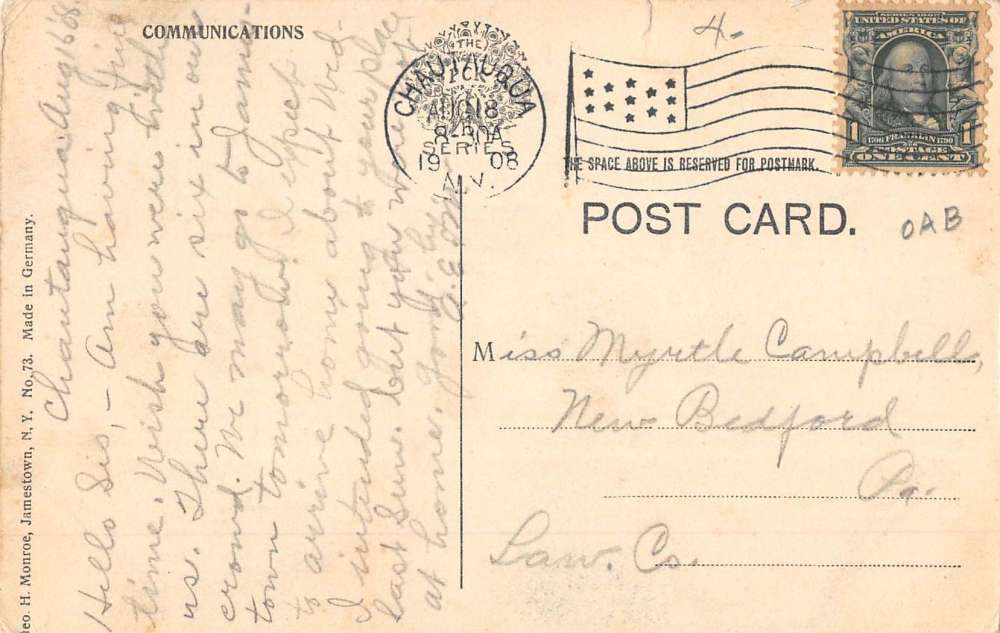 COMMUNICATIONS
4.
THE
CHAUTAUQUA
AUG 18
8-30A
SERIES
1908
N.Y.
SERIES 1902
UNITED STATES OF
AMERICA
1 1
1706 FRANKLIN 1790
POSTAGE
ONE CENT
THE SPACE ABOVE IS RESERVED FOR POSTMARK.
POST CARD.
OAB
Miss Myrtle Campbell,
New Bedford
Pa.
Law. Co.
Chautauqua Aug 16 '08
Hello Sis, - Am having fine
time. Wish you were with
us. There are six in our
crowd. We may go to James-
town tomorrow. I expect
to arrive home about Wed-
I intended going to your place
last Sun. but you were not
at home.
eo. H. Monroe, Jamestown, N.Y. No. 73. Made in Germany.